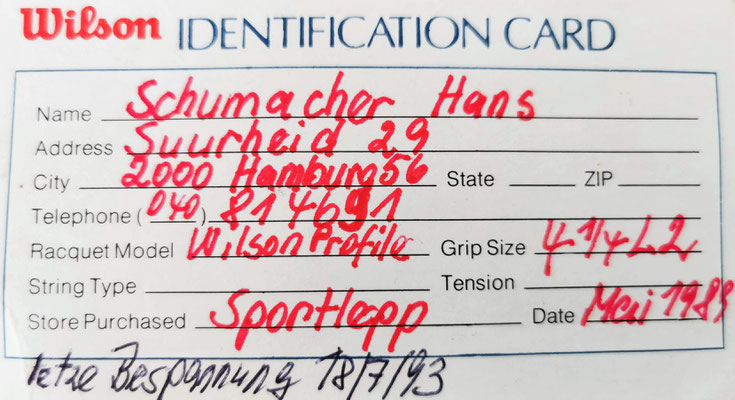 Wilson IDENTIFICATION CARD
Name Schumacher Hans
Address Suurheid 29
City 2000 Hamburg 56 State ZIP
Telephone (040) 814691
Racquet Model Wilson Profile Grip Size 4 1/4 L2
String Type Tension
Store Purchased Sportlepp Date Mai 1989
letze Bespannung 18/7/93